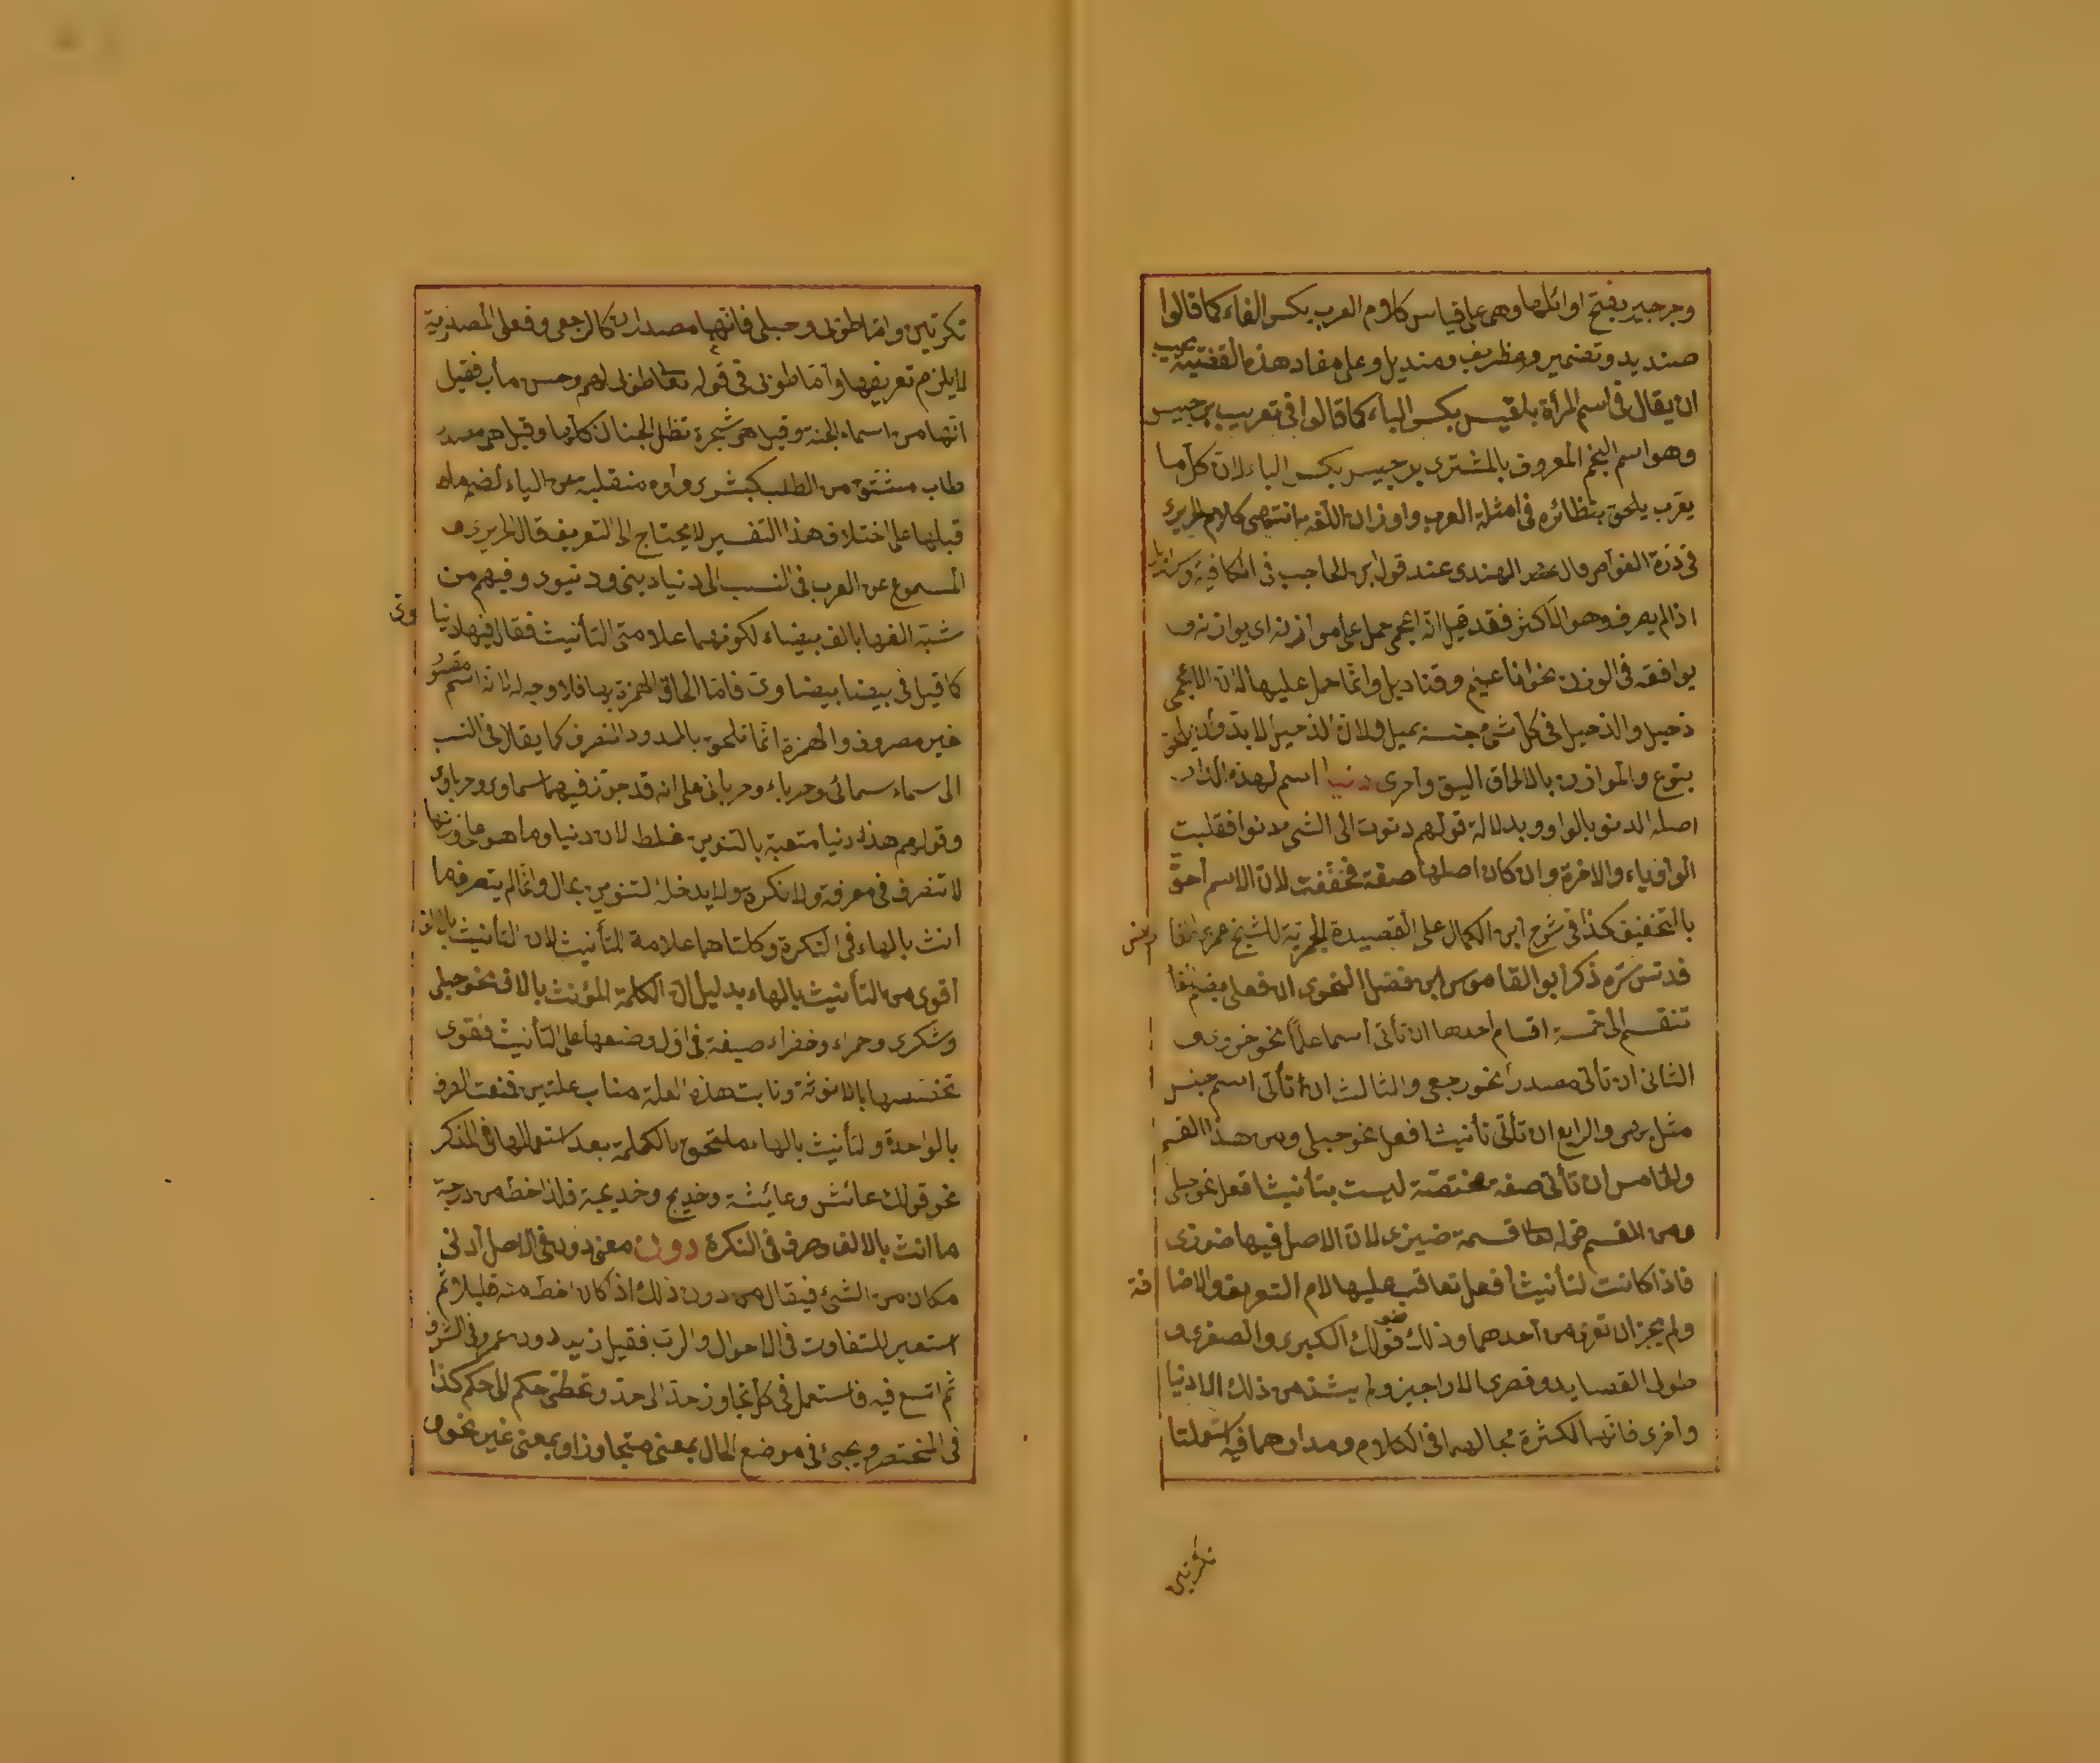 وجرجير بفتح اوائلها وهى على قياس كلام العرب بكسر الفاء كما قالوا
صنديد وقضمير وغظريف ومنديل وعلى مفاد هذه القضية يجب
ان يقال فى اسم المرأة بلقيس بكسر الباء كما قالوا فى تعريب برجيس
وهو اسم النجم المعروف بالمشترى برجيس بكسر الباء لان كل ما
يعرب يلحق بنظائره فى امثلة العرب واوزان اللغة انتهى كلام الحريرى
فى درة الغواص وقال الهندى عند قول ابن الحاجب فى الكافية وسراويل
اذا لم يصرف وهو الاكثر فقد قيل انه اعجمى حمل على موازنه اى يوازنه و
يوافقه فى الوزن نحو اناعيم وقناديل وانما حمل عليها لان الاعجمى
دخيل والدخيل فى كل شئ جنسه يميل ولان الدخيل لا بد وان يلحق
بنوع والموازن بالالحاق اليق واحرى دنيا اسم لهذه الدار
اصله الدنو بالواو وبدلالة قولهم دنوت الى الشئ دنوا فقلبت
الواو ياء والاخرة وان كان اصلها صفة فخففت لان الاسم احق
بالتخفيف كذا فى شرح ابن الكمال على القصيدة الخمرية للشيخ عمر بن الفا
رض
قدس سره ذكر ابو القاموس ابن فضل النحوى ان فعلى بضم الفا
تنقسم الى خمسة اقسام احدها ان تأتى اسما علما نحو حزوى و
الثانى ان تأتى مصدرا نحو رجعى والثالث ان تأتى اسم جنس
مثل بهمى والرابع ان تأتى تأنيث افعل نحو حبلى ومن هذا القسم
والخامس ان تأتى صفة مختصة ليست بتأنيث افعل نحو حبلى
ومن القسم قوله تعا قسمة ضيزى لان الاصل فيها ضوزى
فاذا كانت لتأنيث افعل تعاقب عليها لام التعريف والاضا
فة
ولم يجز ان تعرى من احدهما وذلك نحو قولك الكبرى والصغرى و
طولى القصايد وقصرى الاراجيز ولم يشذ من ذلك الا دنيا
واخرى فانهما لكثرة مجالهما فى الكلام ومدارهما فيه استعملتا
نكرتين
نكرتين واما طوبى وحبلى فانهما مصدران كالرجعى وفعلى المصدرية
لا يلزم تعريفها واما طوبى فى قوله تعا طوبى لهم وحسن مأب فقيل
انها من اسماء الجنة وقيل هى شجرة تظل الجنان كلها وقيل هى مصدر
طاب مشتق من الطيب كبشرى وواوه منقلبة عن الياء لضم ما
قبلها على اختلاف هذا التفسير لا يحتاج الى التعريف قال الحريرى و
المسموع عن العرب فى النسب الى دنيا دينى ودنيوى وفيهم من
شبه الفها بالف بيضاء لكونهما علامتى التأنيث فقال فيها دنيا
وى
كما قيل فى بيضا بيضاوى فاما الحاق الهمزة بها فلا وجه له لانه اسم مقصور
غير مصروف والهمزة انما تلحق بالممدود المنصرف كما يقال فى النسب
الى سماء سمائى وحرباء وحربائى على انه قد جوز فيهما سماوى وحرباوى
وقولهم هذه دنيا متعبة بالتنوين غلط لان دنيا وما هو على وزنها
لا تنصرف فى معرفة ولا نكرة ولا يدخله التنوين بحال وانما لم يتصرف ما
انث بالهاء فى النكرة وكلتاهما علامة التأنيث لان التأنيث بالالف
اقوى من التأنيث بالهاء بدليل ان الكلمة المؤنث بالالف نحو حبلى
وشكرى وحمراء وخضراء صيغة فى اول وضعها على التأنيث فقوى
تخصيصها بالانوثة ونابت هذه العلة مناب علتين فمنعت الصرف
بالواحدة والتأنيث بالهاء ملتحق بالكلمة بعد استعمالها فى المذكر
نحو قولك عائش وعائشة وخديج وخديجة فلذا حط من درجة
ما انث بالالف وصرف فى النكرة دون معنى دون فى الاصل ادنى
مكان من الشئ فيقال من دون ذلك اذا كان احط منه قليلا ثم
استعير للتفاوت فى الاحوال والرتب فقيل زيد دون عمرو فى الشرف
ثم اتسع فيه فاستعمل فى كل تجاوز حد الى حد وتخطى حكم الى حكم كذا
فى المختصر ويجئ فى موضع الحال بمعنى متجاوزا وبمعنى غير نحو